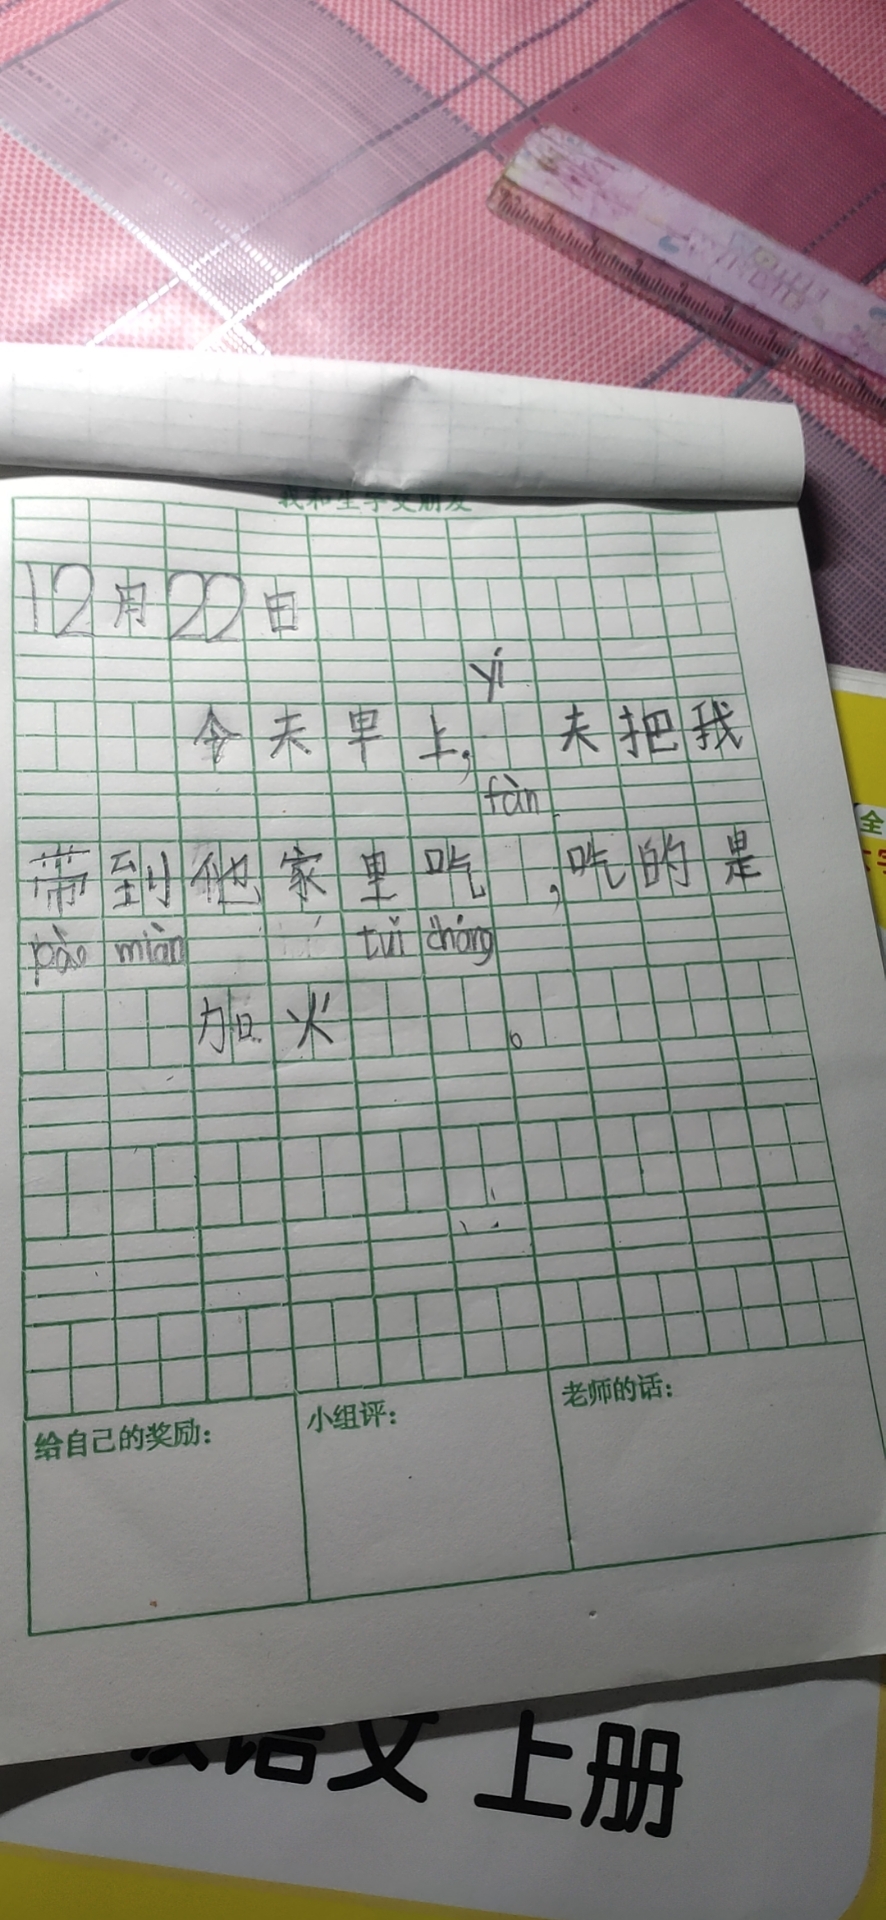 我和生字交朋友
12月22日
yí
今天早上，夫把我
fàn
带到他家里吃，吃的是
pào miàn tuǐ cháng
加火。
给自己的奖励：
小组评：
老师的话：
全
语文 上册